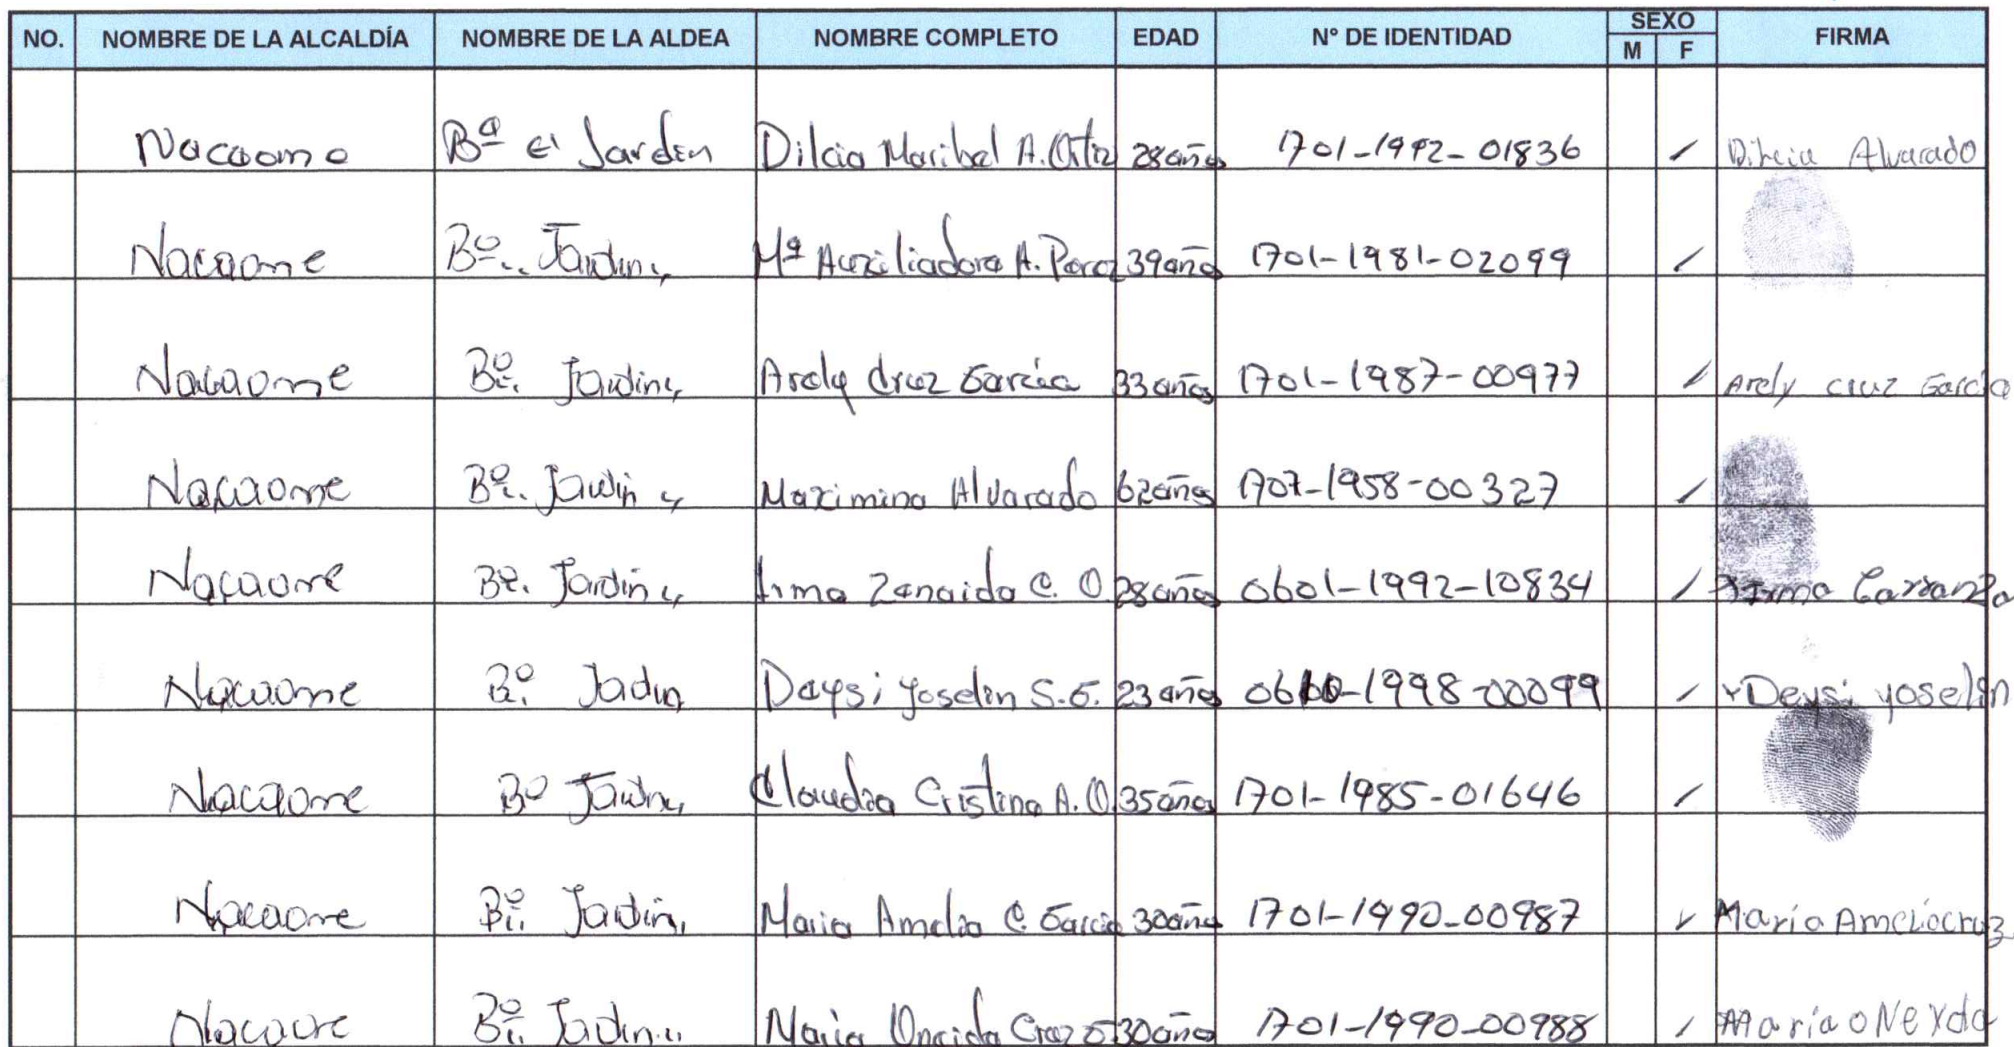 NO. NOMBRE DE LA ALCALDÍA NOMBRE DE LA ALDEA NOMBRE COMPLETO EDAD Nº DE IDENTIDAD SEXO M F FIRMA
Nacaome Bº el Jardin Dilcia Maribel A. Ortiz 28 años 1701-1992-01836 / Dilcia Alvarado
Nacaome Bº. Jardin, Mª Auxiliadora A. Perez 39 años 1701-1981-02099 /
Nacaome Bº. Jardin, Arely Cruz Garcia 33 años 1701-1987-00977 / Arely cruz Garcia
Nacaome Bº. Jardin, Maximina Alvarado 62 años 1707-1958-00327 /
Nacaome Bº. Jardin, Irma Zenaida C. O. 28 años 0601-1992-10834 / Irma Carranza
Nacaome Bº. Jardin Daysi Yoselin S. G. 23 años 0610-1998-00099 / Deysi yoselin
Nacaome Bº Jardin, Claudia Cristina A. O. 35 años 1701-1985-01646 /
Nacaome Bº. Jardin, Maria Amelia C. Garcia 30 años 1701-1990-00987 / Maria Amelia cruz
Nacaome Bº. Jardin, Maria Oneida Cruz G 30 años 1701-1990-00988 / Maria oNeyda